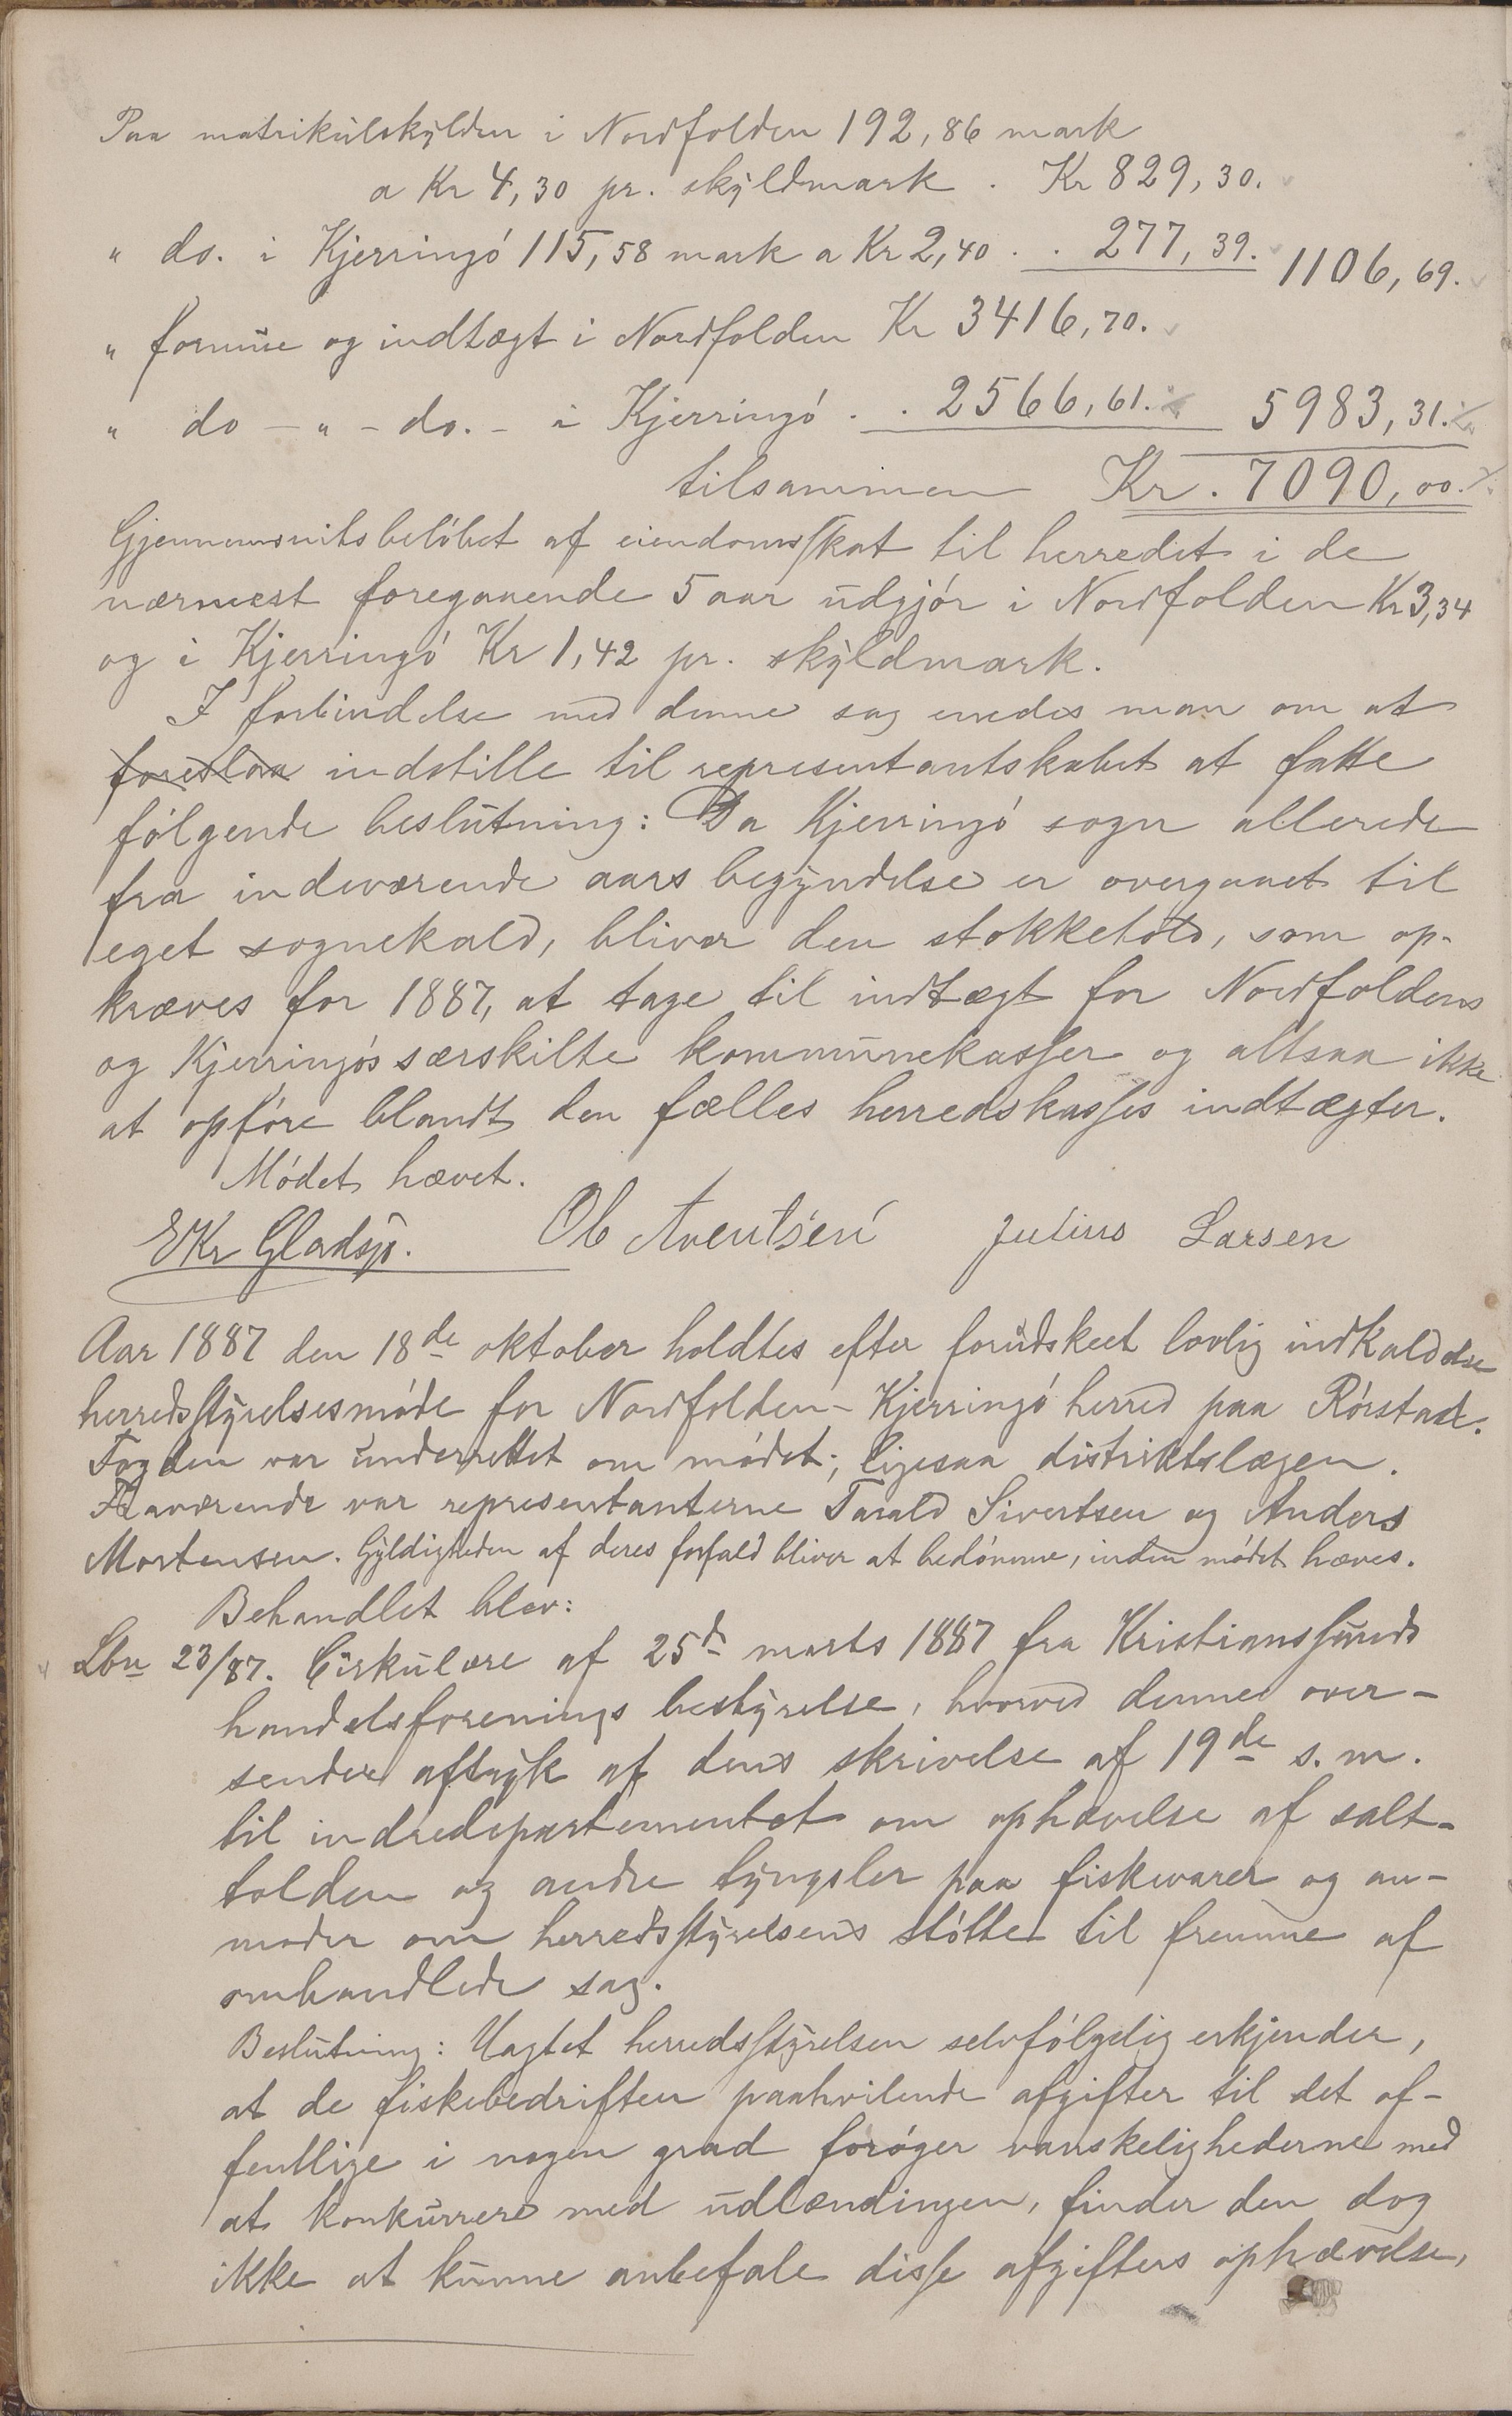 Paa matrikulskylden i Nordfolden 192,86 mark
a Kr 4,30 pr. skyldmark . Kr 829,30.
" do. i Kjerringó 115,58 mark a Kr 2,40 . . 277,39. 1106,69.
" formue og indtægt i Nordfolden Kr 3416,70.
" do - " - do. - i Kjerringó . . 2566,61. 5983,31.
tilsammen Kr. 7090,00.
Gjennemsnitsbelóbet af eiendomsskat til herredet i de
nærmest foregaaende 5 aar udgjór i Nordfolden Kr 3,34
og i Kjerringó Kr 1,42 pr. skyldmark.
I forbindelse med denne sag enedes man om at
foreslaa indstille til representantskabet at fatte
fólgende beslutning: Da Kjerringó sogn allerede
fra indeværende aars begyndelse er overgaaet til
eget sognekald, bliver den stokketold, som op-
kræves for 1887, at tage til indtægt for Nordfoldens
og Kjerringós særskilte kommunekasser og altsaa ikke
at opfóre blandt den fælles herredskasses indtægter.
Módet hævet.
EKr Gladsjo. Ole Aventsen Julius Larsen
Aar 1887 den 18de oktober holdtes efter forudskeet lovlig indkaldelse
herredsstyrelsesmóde for Nordfolden-Kjerringó herred paa Rórstad.
Fogden var underrettet om módet; ligesaa distriktslægen.
Fraværende var representanterne Tarald Sivertsen og Anders
Mortensen. Gyldigheden af deres forfald bliver at bedómme, inden módet hæves.
Behandlet blev:
Lbn 23/87. Cirkulære af 25de marts 1887 fra Kristianssunds
handelsforenings bestyrelse, hvorved denne over-
sender aftryk af dens skrivelse af 19de s. m.
til indredepartementet om ophævelse af salt-
tolden og andre tyngsler paa fiskevarer og an-
moder om herredsstyrelsens stótte til fremme af
omhandlede sag.
Beslutning: Uagtet herredsstyrelsen selvfólgelig erkjender,
at de fiskebedriften paahvilende afgifter til det of-
fentlige i nogen grad foróger vanskelighederne med
at konkurrere med udlændingen, finder den dog
ikke at kunne anbefale disse afgifters ophævelse,